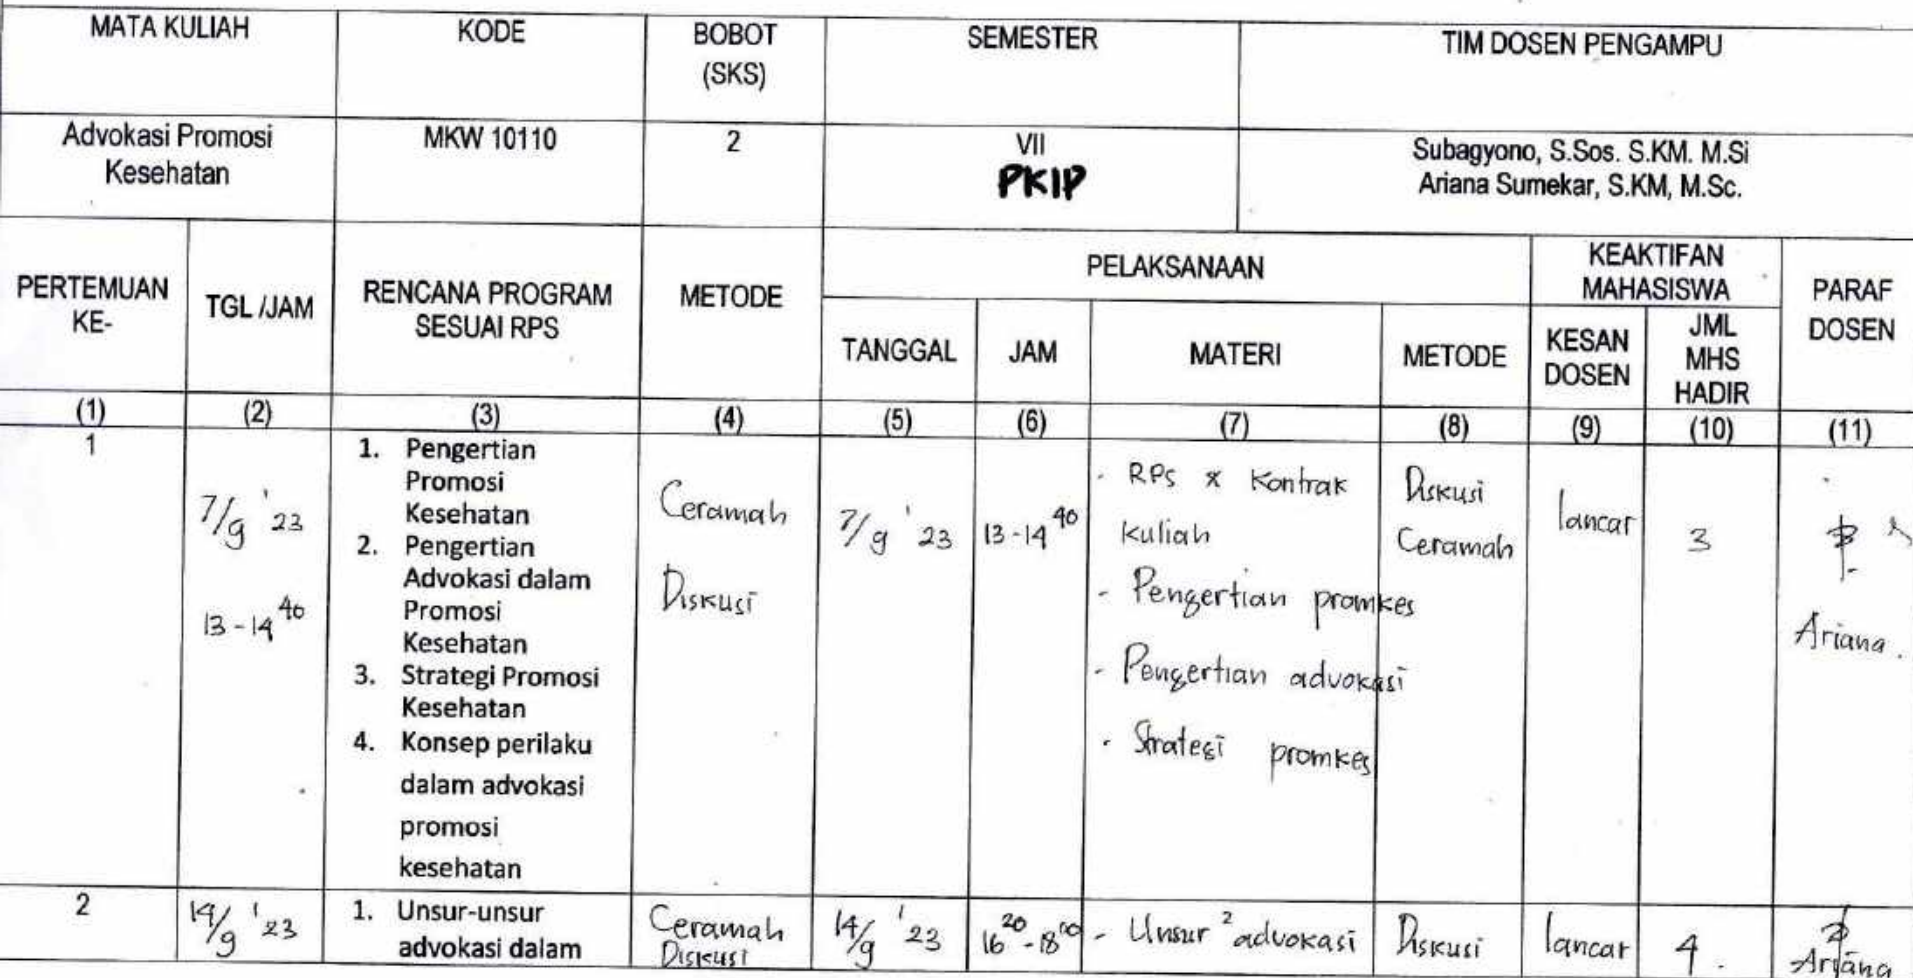 MATA KULIAH KODE BOBOT (SKS) SEMESTER TIM DOSEN PENGAMPU
Advokasi Promosi Kesehatan MKW 10110 2 VII PKIP Subagyono, S.Sos. S.KM. M.Si
Ariana Sumekar, S.KM, M.Sc.
PERTEMUAN KE-
TGL /JAM
RENCANA PROGRAM
SESUAI RPS
METODE
PELAKSANAAN
TANGGAL JAM MATERI METODE
KEAKTIFAN
MAHASISWA
KESAN
DOSEN
JML
MHS
HADIR
PARAF
DOSEN
(1) (2) (3) (4) (5) (6) (7) (8) (9) (10) (11)
1
7/9 '23
13-14 40
1. Pengertian
Promosi
Kesehatan
2. Pengertian
Advokasi dalam
Promosi
Kesehatan
3. Strategi Promosi
Kesehatan
4. Konsep perilaku
dalam advokasi
promosi
kesehatan
Ceramah
Diskusi
7/9 '23
13-14 40
- RPS & Kontrak
kuliah
- Pengertian promkes
- Pengertian advokasi
- Strategi promkes
Diskusi
Ceramah
lancar
3
Ariana.
2
14/9 '23
1. Unsur-unsur
advokasi dalam
Ceramah
Diskusi
14/9 '23
16 20 - 18 00
- Unsur 2 advokasi
Diskusi
lancar
4.
Ariana